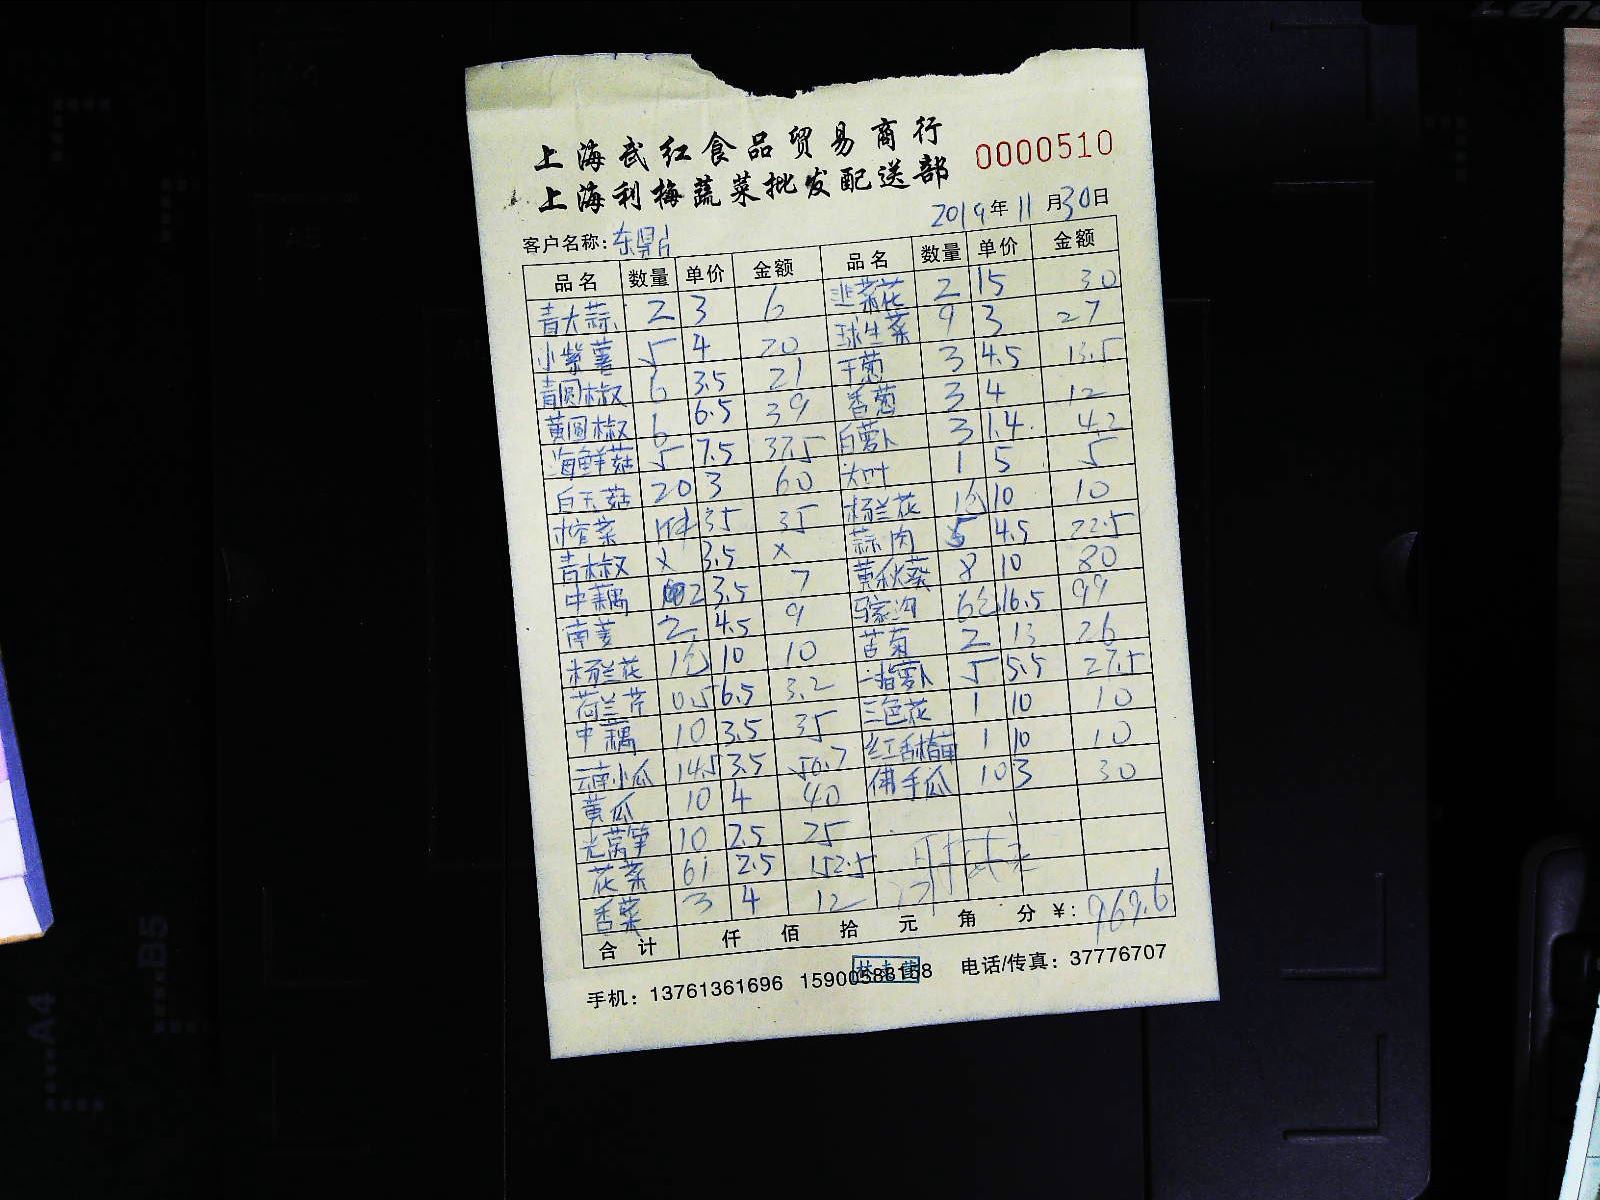 上海武红食品贸易商行
上海利梅蔬菜批发配送部
0000510
2019年11月30日
客户名称:东鼎
品名 数量 单价 金额 品名 数量 单价 金额
青大蒜 2 3 6 韭菜花 2 15 30
小紫薯 5 4 20 球生菜 9 3 27
青圆椒 6 3.5 21 干葱 3 4.5 13.5
黄圆椒 6 6.5 39 香葱 3 4 12
海鲜菇 5 7.5 37.5 白萝卜 3 1.4 4.2
白玉菇 20 3 60 大叶 1 5 5
榨菜 1件 35 35 杨兰花 1包 10 10
青椒 x 3.5 x 蒜肉 5 4.5 22.5
中藕 2 3.5 7 黄秋葵 8 10 80
南姜 2 4.5 9 马家沟 6包 16.5 99
杨兰花 1包 10 10 苦菊 2 13 26
荷兰芹 0.5 6.5 3.2 萝卜 5 5.5 27.5
中藕 10 3.5 35 三色花 1 10 10
云南小瓜 14.5 3.5 50.7 红 1 10 10
黄瓜 10 4 40 佛手瓜 10 3 30
光莴笋 10 2.5 25
花菜 61 2.5 152.5
香菜 3 4 12
合计 仟 佰 拾 元 角 分 ¥: 969.6
手机: 13761361696 15900588158 电话/传真: 37776707